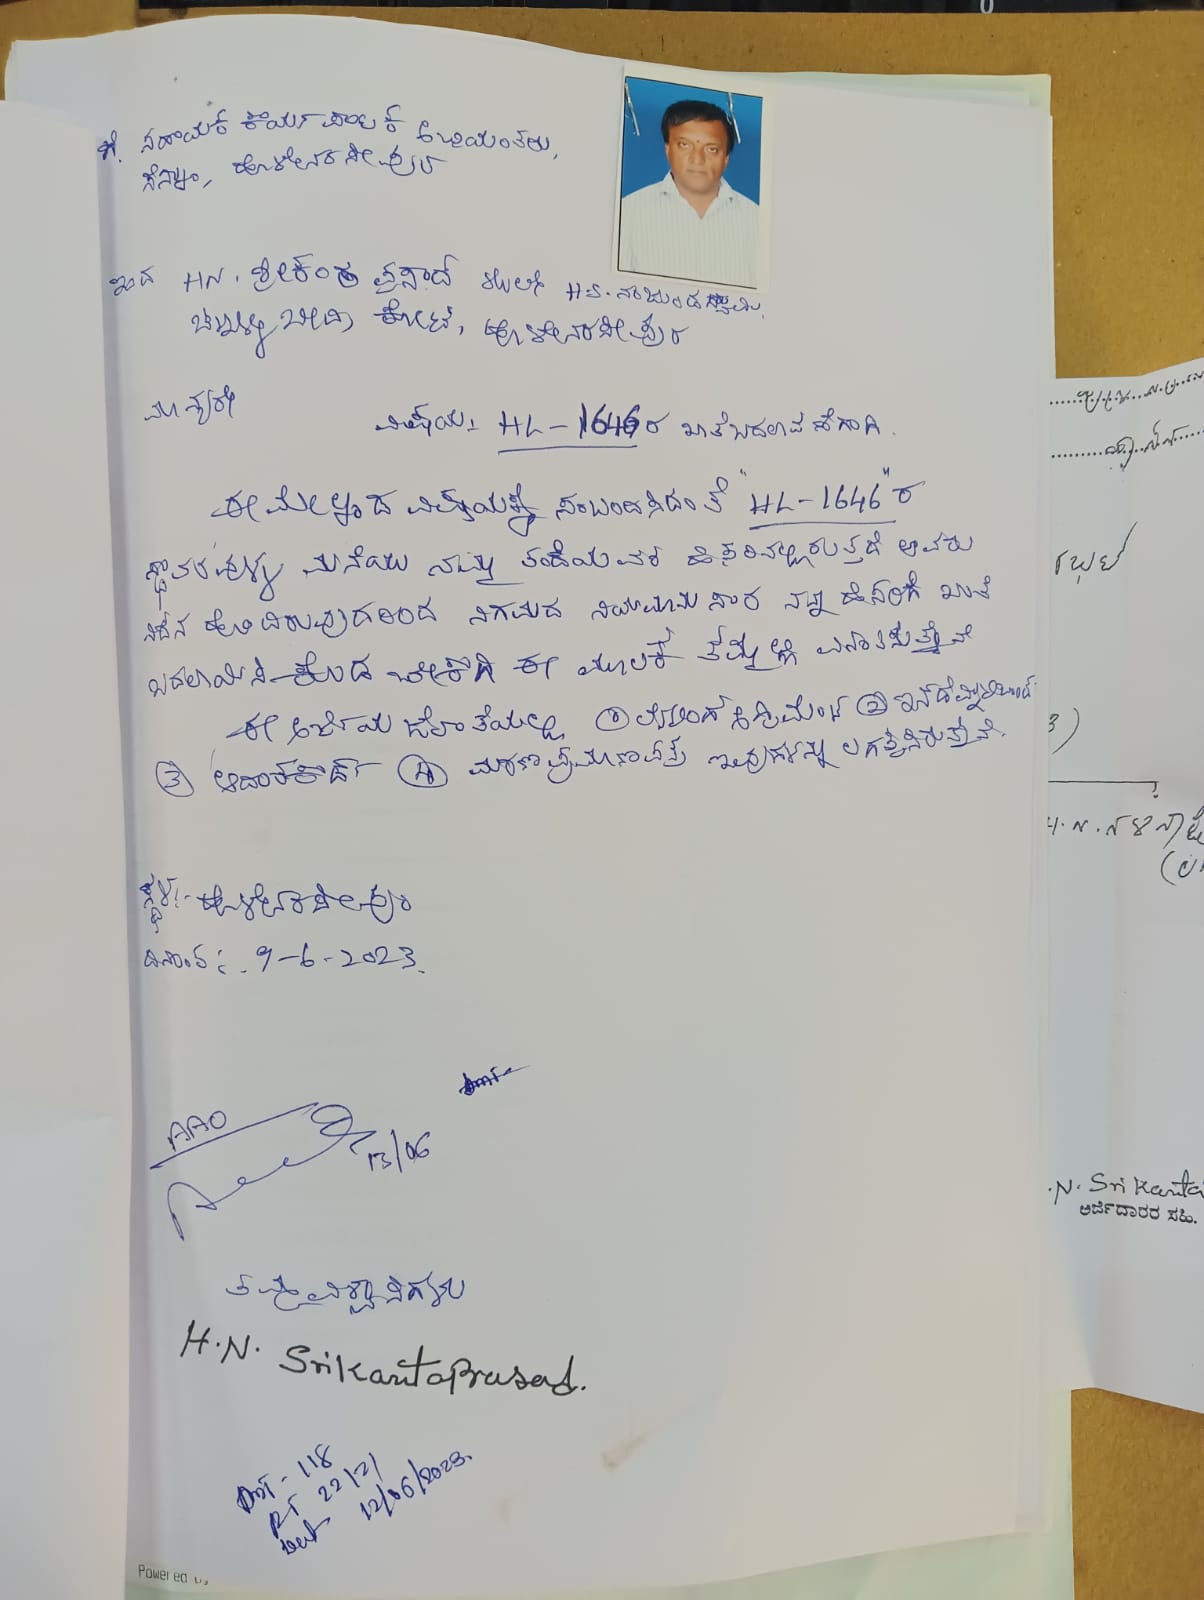 ಗೆ. ಸಹಾಯಕ ಕಾರ್ಯಪಾಲಕ ಅಭಿಯಂತರು,
ಸೆಸ್ಕಾಂ, ಹೊಳೇನರಸೀಪುರ
ಇಂದ HN. ಶ್ರೀಕಂಠ ಪ್ರಸಾದ್ H.S. ನಂಜುಂಡಸ್ವಾಮಿ,
ಬೀದಿ ಕೋಟೆ, ಹೊಳೇನರಸೀಪುರ
ಮಾನ್ಯರೇ
ವಿಷಯ: HL-1646 ರ ಖಾತೆ ಬದಲಾವಣೆಗಾಗಿ.
ಈ ಮೇಲ್ಕಂಡ ವಿಷಯಕ್ಕೆ ಸಂಬಂದಿಸಿದಂತೆ "HL-1646" ರ
ಸ್ಥಾವರವುಳ್ಳ ಮನೆಯು ನಮ್ಮ ತಂದೆಯವರ ಹೆಸರಿನಲ್ಲಿರುತ್ತದೆ ಅವರು
ನಿಧನ ಹೊಂದಿರುವುದರಿಂದ ನಿಗಮದ ನಿಯಮಾನುಸಾರ ನನ್ನ ಹೆಸರಿಗೆ ಖಾತೆ
ಬದಲಾಯಿಸಿಕೊಡಬೇಕಾಗಿ ಈ ಮೂಲಕ ತಮ್ಮಲ್ಲಿ ವಿನಂತಿಸುತ್ತೇನೆ
ಈ ಅರ್ಜಿಯ ಜೊತೆಯಲ್ಲಿ ① ಅಗ್ರಿಮೆಂಟ್ ② ಇನ್ಡೆಮ್ನಿಟಿಬಾಂಡ್
③ ಆಧಾರಕಾರ್ಡ್ ④ ಮರಣ ಪ್ರಮಾಣ ಪತ್ರ ಇವುಗಳನ್ನು ಲಗತ್ತಿಸಿರುತ್ತೇನೆ.
ಸ್ಥಳ:- ಹೊಳೇನರಸೀಪುರ
ದಿನಾಂಕ: 9-6-2023.
AAO
13/06
ತಮ್ಮ ವಿಶ್ವಾಸಿಗಳು
H.N. SrikantaPrasad.
118
RT 22121
12/06/2023.
Powered by
H.N.
.N. Srikanta
ಅರ್ಜಿದಾರರ ಸಹಿ.